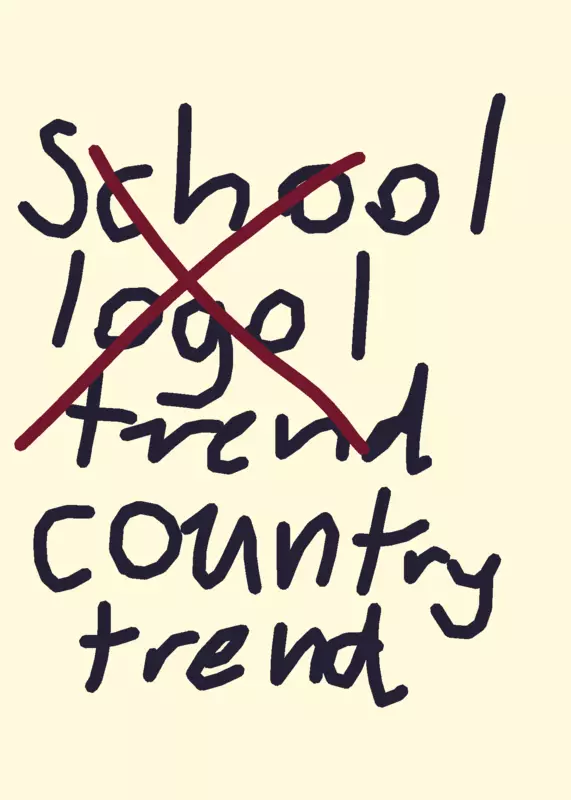 School
logo l
trend
country
trend